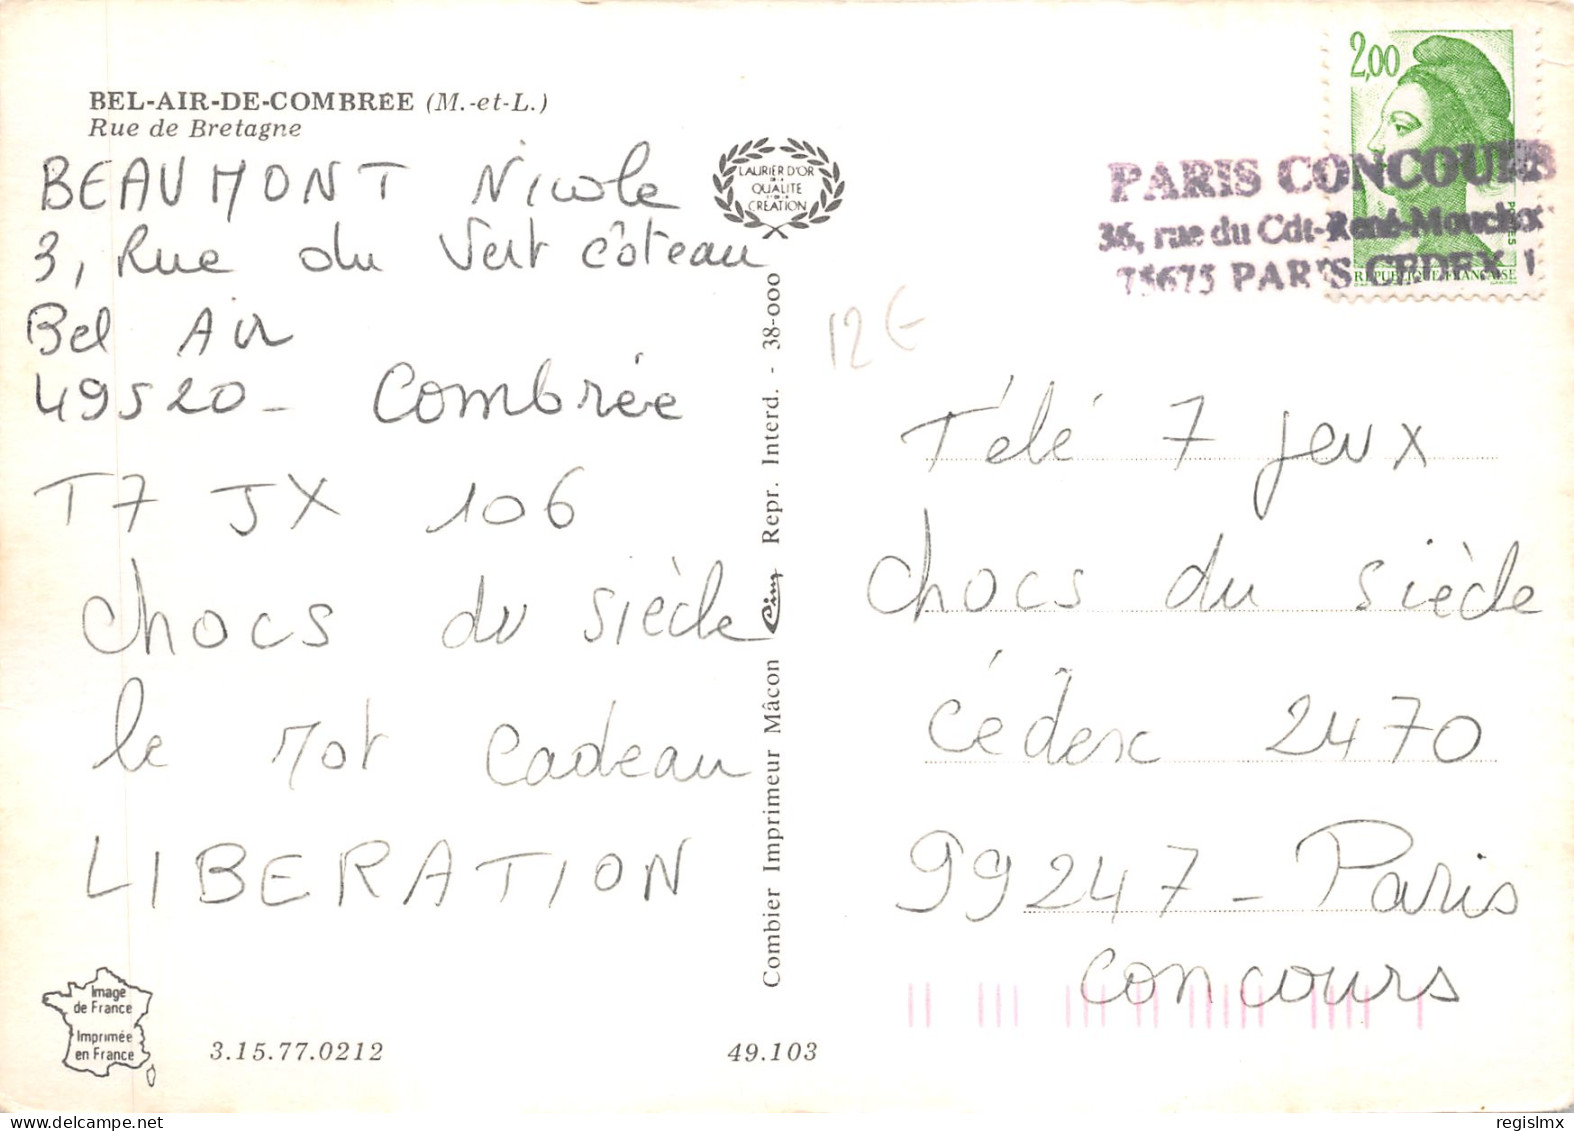 BEL-AIR-DE-COMBREE (M.-et-L.)
Rue de Bretagne
BEAUMONT Nicole
3, Rue du Vert côteau
Bel Air
49520 - Combrée
T7 JX 106
chocs du siècle
le mot cadeau
LIBERATION
Image
de France
Imprimée
en France
3.15.77.0212
49.103
LAURIER D'OR
DE LA
QUALITE
ET DE LA
CREATION
Combier Imprimeur Mâcon Cim Repr. Interd. - 38-000
12 €
2,00
POSTES
REPUBLIQUE FRANÇAISE
PARIS CONCOURS
36, rue du Cdt-René-Mouchotte
75675 PARIS CEDEX 1
Télé 7 jeux
chocs du siècle
cédex 2470
99247 - Paris
concours
regislmx